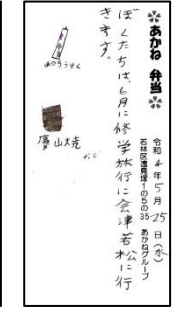 あかね 弁当
令和4年5月25日(水)
若林区遠見塚1の5の35 あかねグループ
ぼくたちは、6月に修学旅行に会津若松に行
きます。
赤ろうそく
慶山焼
など